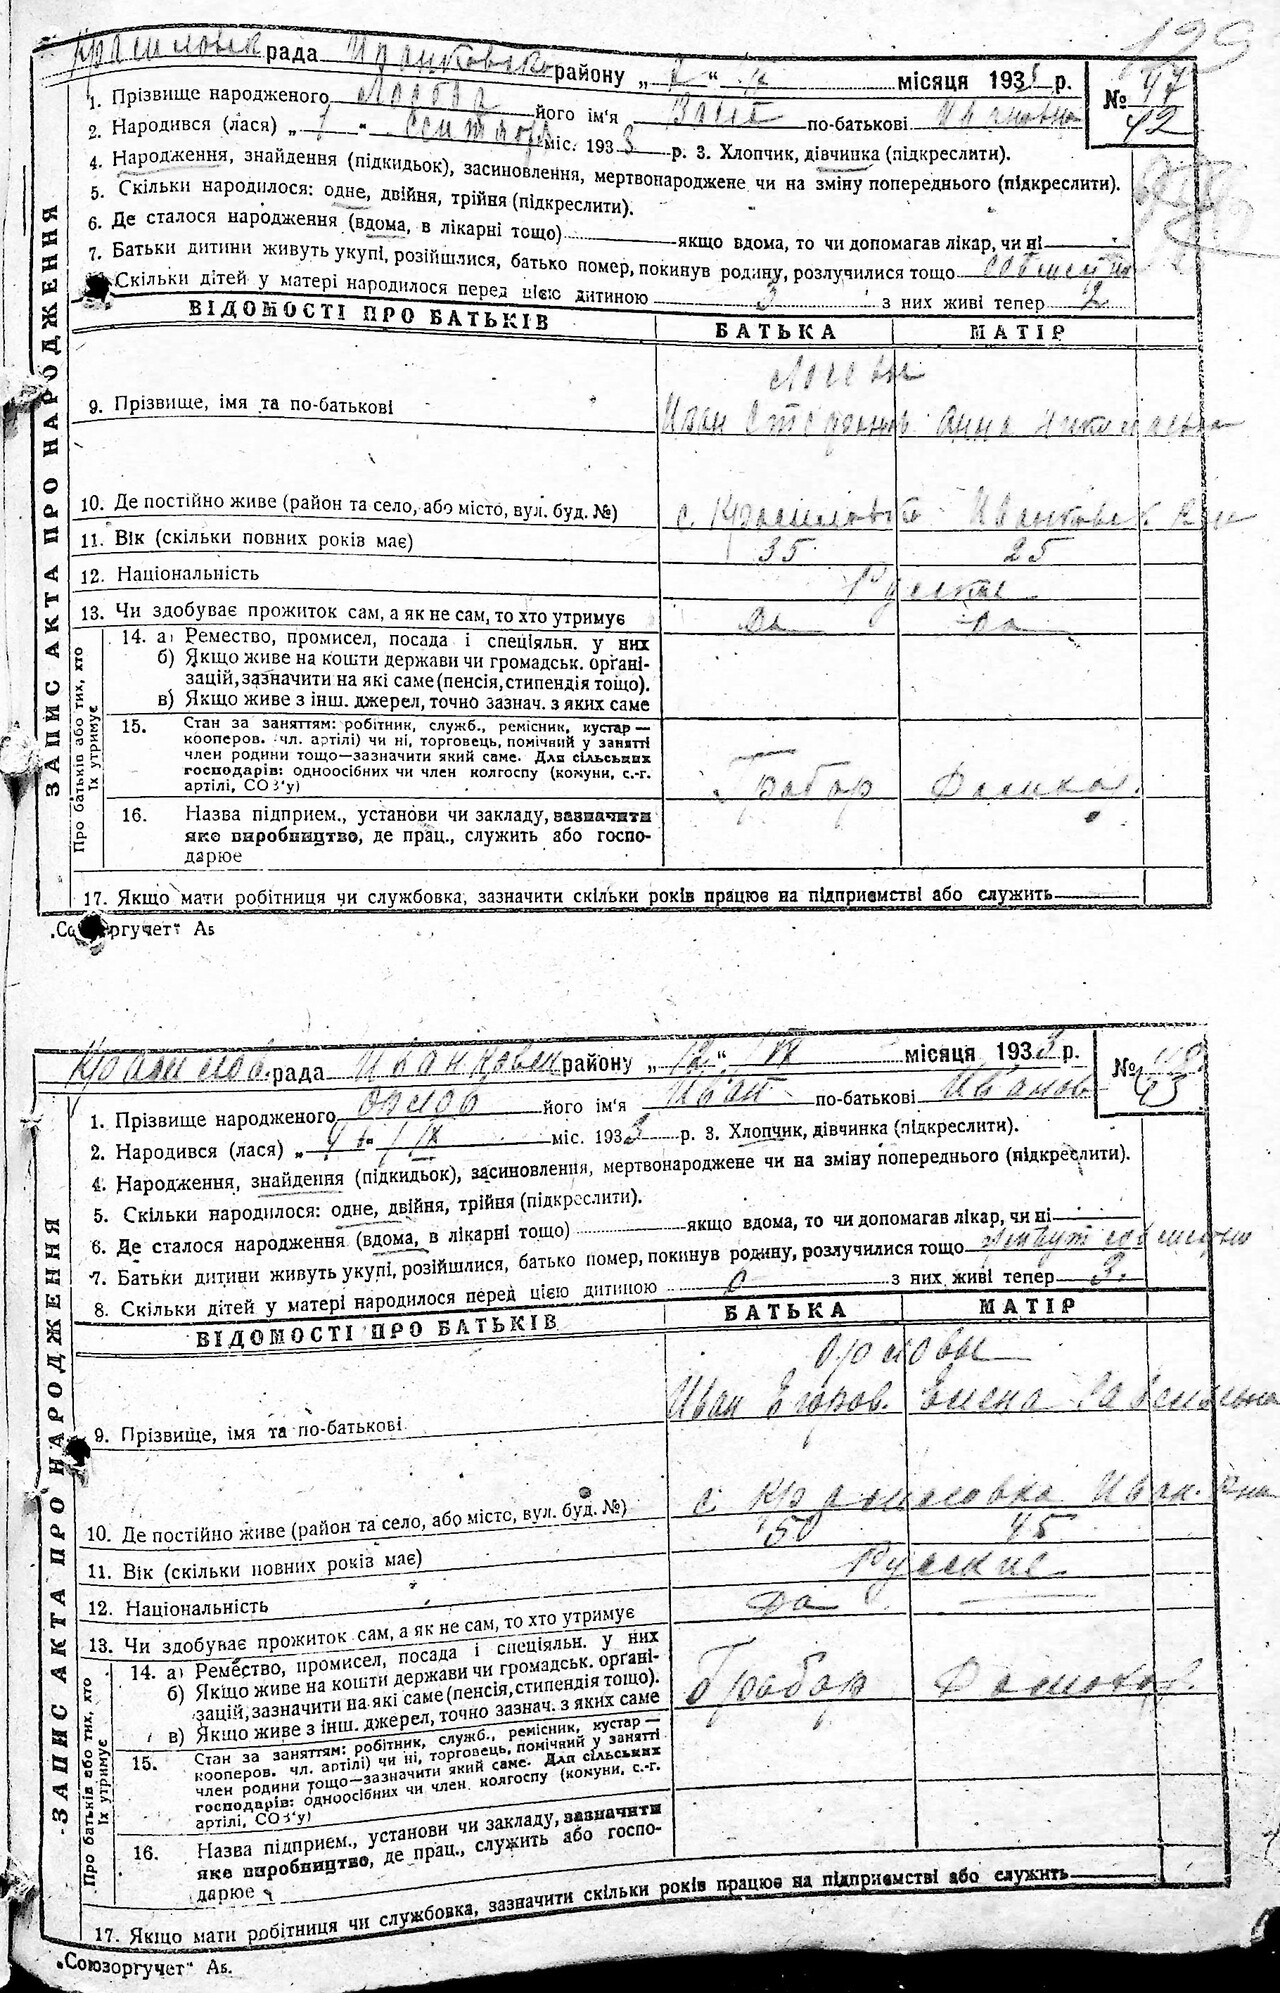 199
рада району „ 2 “ місяця 193 р. № 47
42
1. Прізвище народженого його ім'я по-батькові Ивановна
2. Народився (лася) „ 1 “ сентября міс. 193 3 р. 3. Хлопчик, дівчинка (підкреслити).
4. Народження, знайдення (підкидьок), засиновлення, мертвонароджене чи на зміну попереднього (підкреслити).
5. Скільки народилося: одне, двійня, трійня (підкреслити).
6. Де сталося народження (вдома, в лікарні тощо) якщо вдома, то чи допомагав лікар, чи ні
7. Батьки дитини живуть укупі, розійшлися, батько помер, покинув родину, розлучилися тощо
Скільки дітей у матері народилося перед цією дитиною 3 з них живі тепер 2
ВІДОМОСТІ ПРО БАТЬКІВ БАТЬКА МАТІР
9. Прізвище, імя та по-батькові Иван Анна Николаевна
10. Де постійно живе (район та село, або місто, вул. буд. №) с. Красиловка Иванковск. р-на
11. Вік (скільки повних років має) 35 25
12. Національність Русские
13. Чи здобуває прожиток сам, а як не сам, то хто утримує да да
Про батьків або тих, хто їх утримує
14. а) Ремество, промисел, посада і спеціяльн. у них
б) Якщо живе на кошти держави чи громадськ. органі-
зацій, зазначити на які саме (пенсія, стипендія тощо).
в) Якщо живе з інш. джерел, точно зазнач. з яких саме
15. Стан за заняттям: робітник, служб., ремісник, кустар—
кооперов. чл. артілі) чи ні, торговець, помічний у занятті
член родини тощо—зазначити який саме. Для сільських
господарів: одноосібних чи член колгоспу (комуни, с.-г.
артілі, СОЗ'у) Грабар Домохоз.
16. Назва підприєм., установи чи закладу, зазначити
яке виробництво, де прац., служить або госпо-
дарює
17. Якщо мати робітниця чи службовка, зазначити скільки років працює на підприємстві або служить
ЗАПИС АКТА ПРО НАРОДЖЕННЯ
„Союзоргучет“ А5
рада району „ 12 “ місяця 193 3 р. № 48
43
1. Прізвище народженого Орлов його ім'я Иван по-батькові Иванов
2. Народився (лася) „ IX міс. 193 3 р. 3. Хлопчик, дівчинка (підкреслити).
4. Народження, знайдення (підкидьок), засиновлення, мертвонароджене чи на зміну попереднього (підкреслити).
5. Скільки народилося: одне, двійня, трійня (підкреслити).
6. Де сталося народження (вдома, в лікарні тощо) якщо вдома, то чи допомагав лікар, чи ні
7. Батьки дитини живуть укупі, розійшлися, батько помер, покинув родину, розлучилися тощо живут совместно
8. Скільки дітей у матері народилося перед цією дитиною з них живі тепер 3.
ВІДОМОСТІ ПРО БАТЬКІВ БАТЬКА МАТІР
Орловы
9. Прізвище, імя та по-батькові Иван Егоров. Елена Савельевна
10. Де постійно живе (район та село, або місто, вул. буд. №) с. Красиловка Иван. р-на
11. Вік (скільки повних років має) 50 45
12. Національність Русские
13. Чи здобуває прожиток сам, а як не сам, то хто утримує да
Про батьків або тих, хто їх утримує
14. а) Ремество, промисел, посада і спеціяльн. у них
б) Якщо живе на кошти держави чи громадськ. органі-
зацій, зазначити на які саме (пенсія, стипендія тощо).
в) Якщо живе з інш. джерел, точно зазнач. з яких саме
Грабар Домохоз.
15. Стан за заняттям: робітник, служб., ремісник, кустар—
кооперов. чл. артілі) чи ні, торговець, помічний у занятті
член родини тощо—зазначити який саме. Для сільських
господарів: одноосібних чи член колгоспу (комуни, с.-г.
артілі, СОЗ'у)
16. Назва підприєм., установи чи закладу, зазначити
яке виробництво, де прац., служить або госпо-
дарює
17. Якщо мати робітниця чи службовка, зазначити скільки років працює на підприємстві або служить
ЗАПИС АКТА ПРО НАРОДЖЕННЯ
„Союзоргучет“ А5.